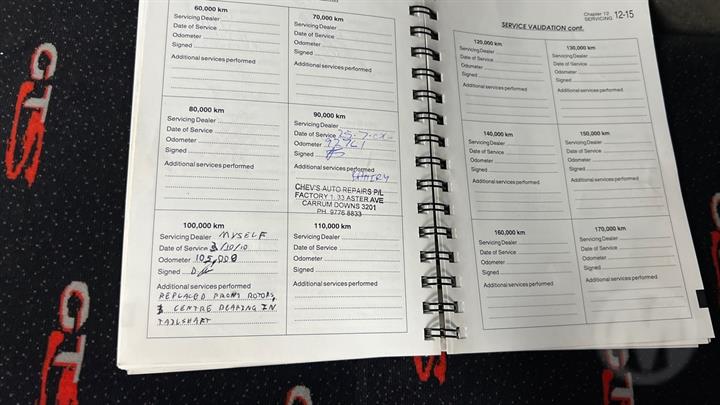 60,000 km
Servicing Dealer
Date of Service
Odometer
Signed
Additional services performed
70,000 km
Servicing Dealer
Date of Service
Odometer
Signed
Additional services performed
80,000 km
Servicing Dealer
Date of Service
Odometer
Signed
Additional services performed
90,000 km
Servicing Dealer
Date of Service
Odometer 92761
Signed
Additional services performed
CHEV'S AUTO REPAIRS P/L
FACTORY 1, 33 ASTER AVE
CARRUM DOWNS 3201
PH. 9776 8833
100,000 km
Servicing Dealer MYSELF
Date of Service 3/10/10
Odometer 105,000
Signed
Additional services performed
REPLACED FRONT ROTORS,
& CENTRE BEARING IN
TAILSHAFT
110,000 km
Servicing Dealer
Date of Service
Odometer
Signed
Additional services performed
Chapter 12
SERVICING 12-15
SERVICE VALIDATION cont.
120,000 km
Servicing Dealer
Date of Service
Odometer
Signed
Additional services performed
130,000 km
Servicing Dealer
Date of Service
Odometer
Signed
Additional services performed
140,000 km
Servicing Dealer
Date of Service
Odometer
Signed
Additional services performed
150,000 km
Servicing Dealer
Date of Service
Odometer
Signed
Additional services performed
160,000 km
Servicing Dealer
Date of Service
Odometer
Signed
Additional services performed
170,000 km
Servicing Dealer
Date of Service
Odometer
Signed
Additional services performed
GTS
GTS
GTS
GTS